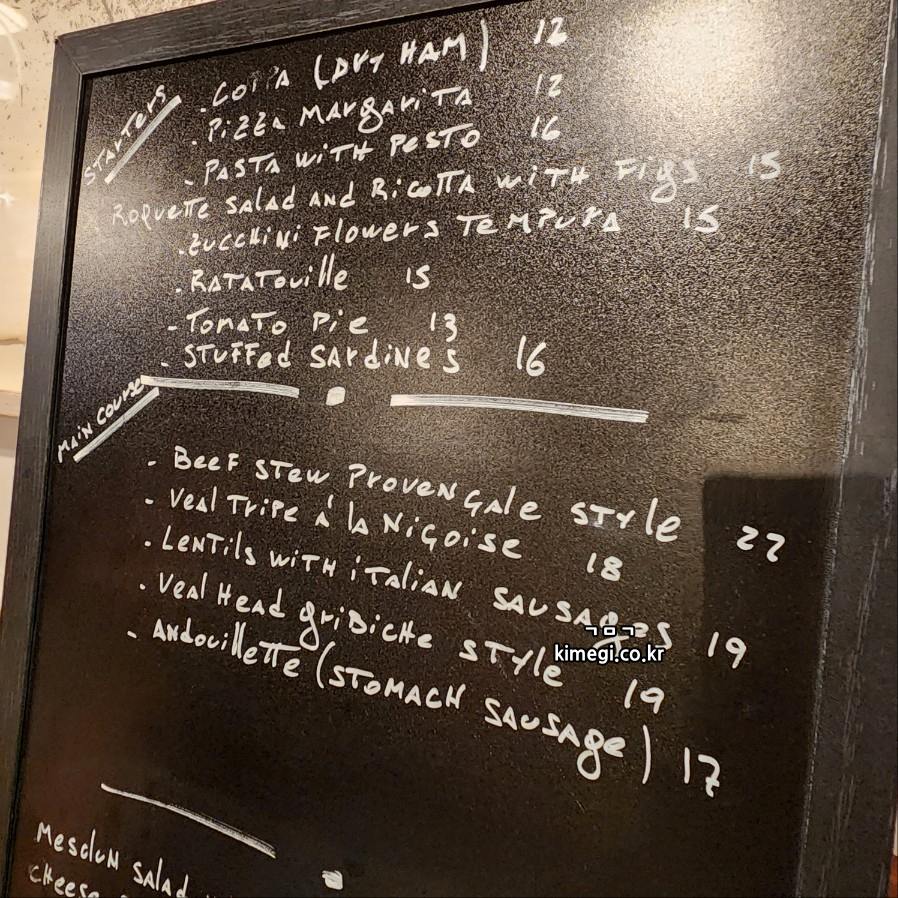 STARTERS
. COPPA (DRY HAM) 12
. PIZZA MARGARITA 12
- PASTA WITH PESTO 16
ROQUETTE SALAD AND RICOTTA WITH FIGS 15
. ZUCCHINI FLOWERS TEMPURA 15
. RATATOUILLE 15
- TOMATO PIE 13
- STUFFED SARDINES 16
MAIN COURSE
- BEEF STEW PROVENÇALE STYLE 22
- VEAL TRIPE À LA NIÇOISE 18
. LENTILS WITH ITALIAN SAUSAGES 19
. VEAL HEAD GRIBICHE STYLE 19
- ANDOUILLETTE (STOMACH SAUSAGE) 17
ㄱㅁㄱㅅ
kimegi.co.kr
MESCLUN SALAD
CHEESE